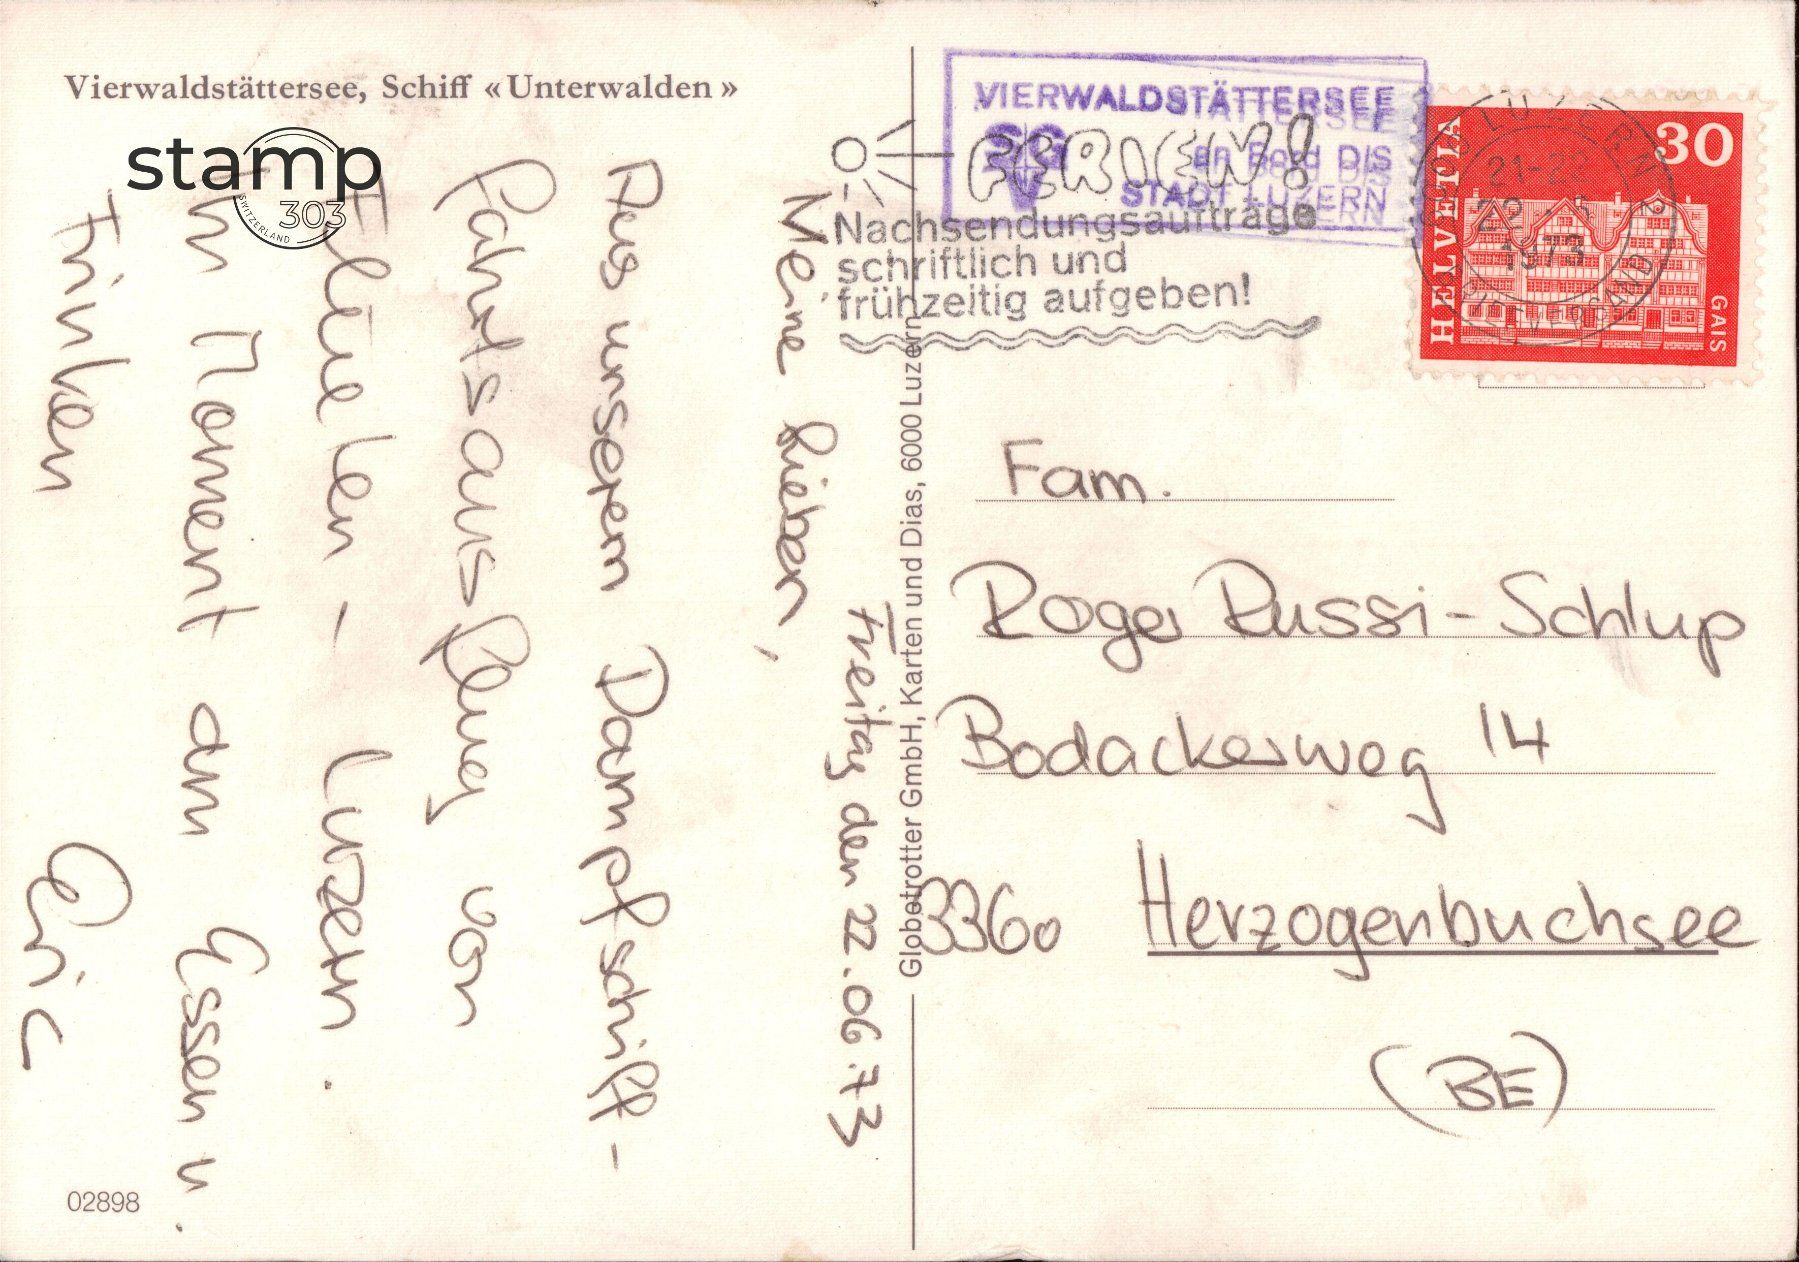 Vierwaldstättersee, Schiff «Unterwalden»
stamp
303
SWITZERLAND
Freitag den 22.06.73
Meine Lieben,
Aus unserem Dampfschiff-
Fahrtsausflug von
Flüelen - Luzern.
Im Moment am Essen u.
Trinken
Eric
02898
Globetrotter GmbH, Karten und Dias, 6000 Luzern
VIERWALDSTÄTTERSEE
SGV
an Bord DIS
STADT LUZERN
FERIEN!
Nachsendungsaufträge
schriftlich und
frühzeitig aufgeben!
LUZERN 2
21-22
22.
1973
BRIEFVERSAND
HELVETIA
30
GAIS
Fam.
Roger Russi-Schlup
Bodackerweg 14
3360 Herzogenbuchsee
(BE)